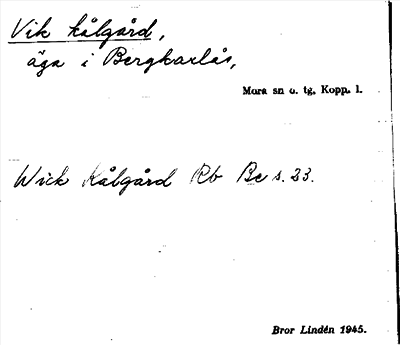 Vik kålgård,
äga i Bergkarlås,
Mora sn o. tg. Kopp. l.
Wick Kålgård Rb Be s. 23.
Bror Lindén 1945.